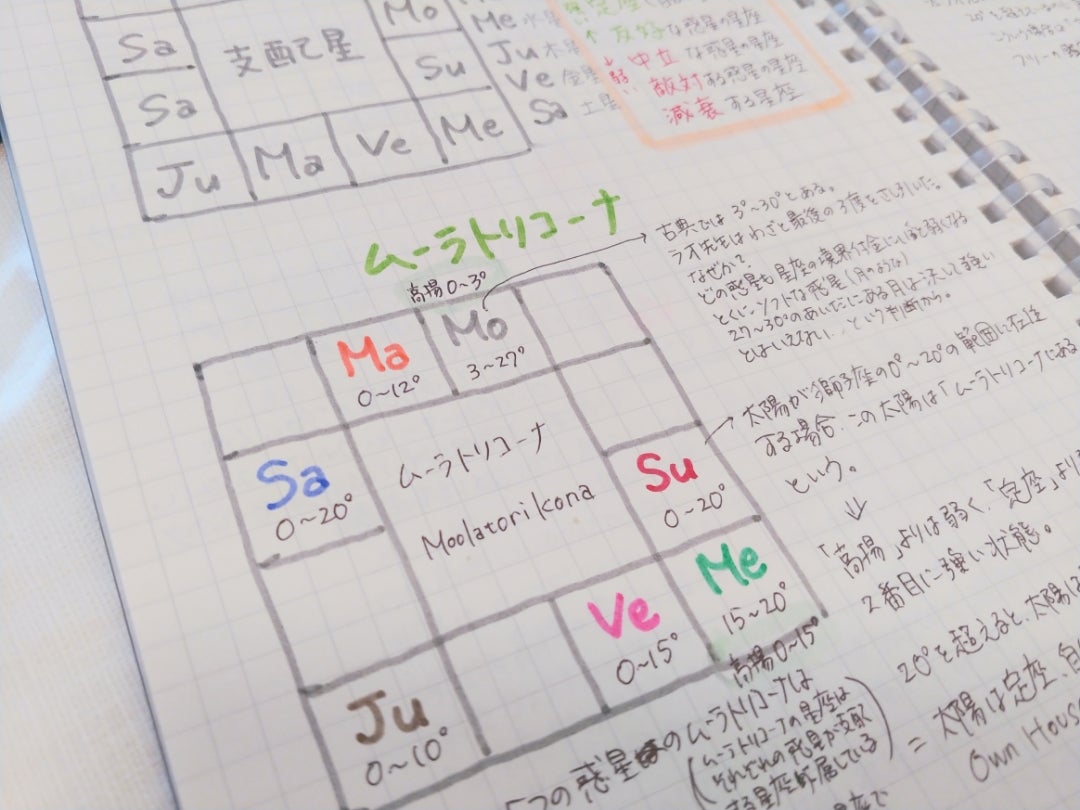 Mo
Sa
支配星
Su
Sa
Ju Ma Ve Me
Me 水星
Ju 木星
Ve 金星
Sa 土星
↑ 友好な惑星の星座
中立 な惑星の星座
敵対する惑星の星座
減衰する星座
20°と
ムーラトリコーナ
高揚 0~3°
Ma
0~12°
Mo
3~27°
Sa
0~20°
ムーラトリコーナ
Moolatorikona
Su
0~20°
Me
15~20°
高揚 0~15°
Ve
0~15°
Ju
0~10°
古典では 3°~30°とある。
ラオ先生はわざと最後の3度をさし引いた。
なぜか?
どの惑星も星座の境界付近にいると弱くなる
とくにソフトな惑星(月のような)
27~30°のあいだにある月は決して強い
とはいえない…という判断から。
太陽が獅子座の0°~20°の範囲に在住
する場合、この太陽は「ムーラトリコーナにある
という。
↓
「高揚」よりは弱く、「定座」より
2番目に強い状態。
20°を超えると、太陽は
= 太陽は定座、自
Own Hous
の惑星のムーラトリコーナは
(ムーラトリコーナの星座は
それぞれの惑星が支配
する星座に属している)
星座で